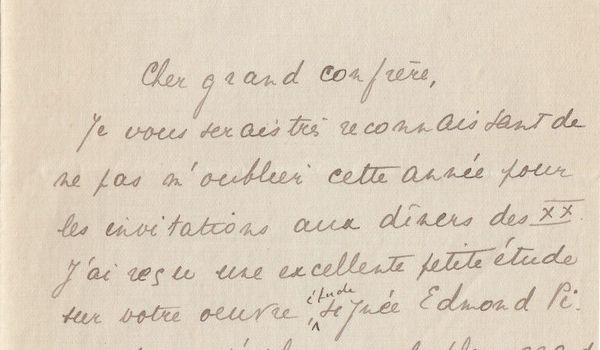 Cher grand confrère,
Je vous serais très reconnaissant de
ne pas m'oublier cette année pour
les invitations aux dîners des XX.
J'ai reçu une excellente petite étude
étude
sur votre oeuvre, signée Edmond Pi-